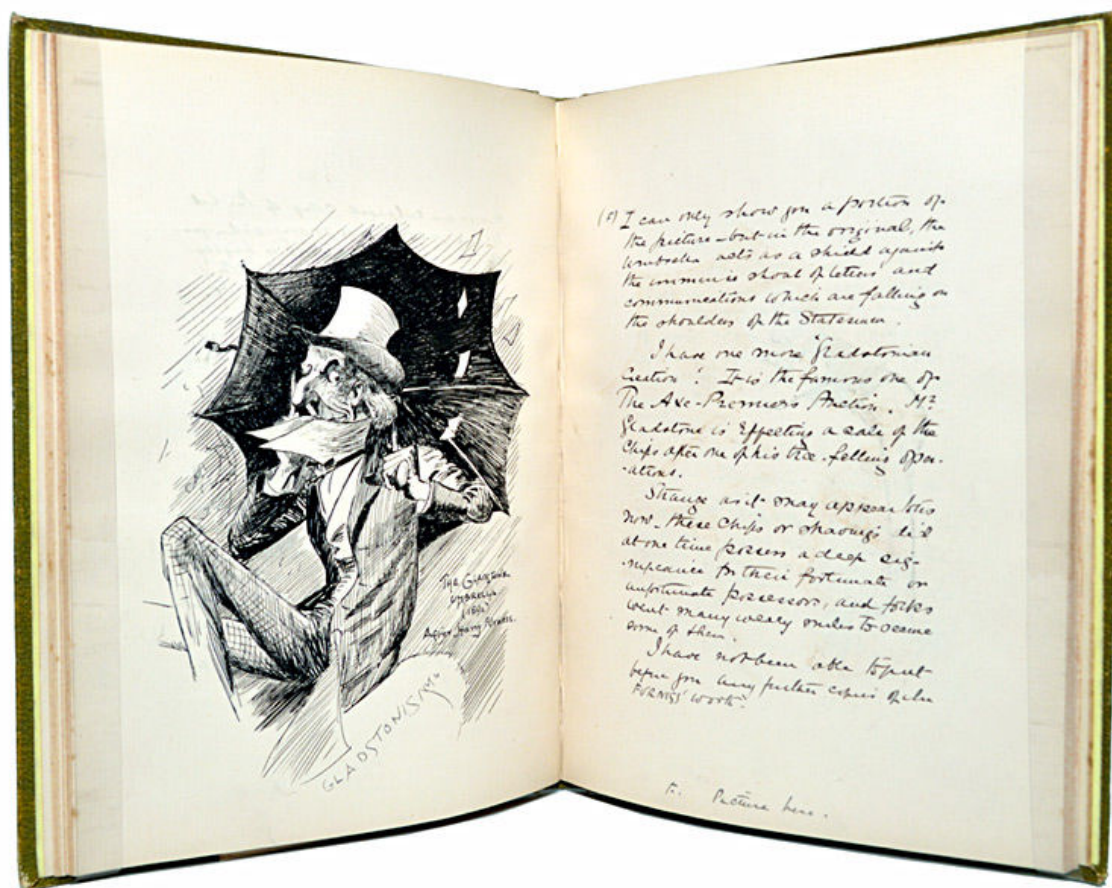 The Gladstone
Umbrella
After Harry Furniss.
GLADSTONISM
I can only show you a portion of
the picture – but in the original, the
umbrella acts as a shield against
the immense shoal of letters and
communications which are falling on
the shoulders of the Statesman.
I have one more "Gladstonian
Creation". It is the famous one of
The Axe-Premiers Auction. Mr
Gladstone is effecting a sale of the
Chips after one of his tree-felling oper-
-ations.
Strange as it may appear to us
now – these Chips or shavings did
at one time possess a deep sig-
-nificance for their fortunate or
unfortunate possessors, and folks
went many weary miles to secure
some of them.
I have not been able to put
before you any further copies of
FURNISS' work.
Picture here.